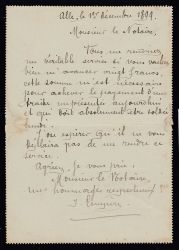 Alle, le 1er décembre 1899.
Monsieur le Notaire,
Vous me rendriez
un véritable service si vous vouliez
bien m'avancer vingt francs,
cette somme m'est nécessaire
pour achever le payement d'une
traite présentée aujourd'hui
et qui doit absolument être soldée
J'ose espérer qu'il ne vous
déplaira pas de me rendre ce
service.
Agréez, je vous prie,
Monsieur le Notaire,
mes hommages respectueux